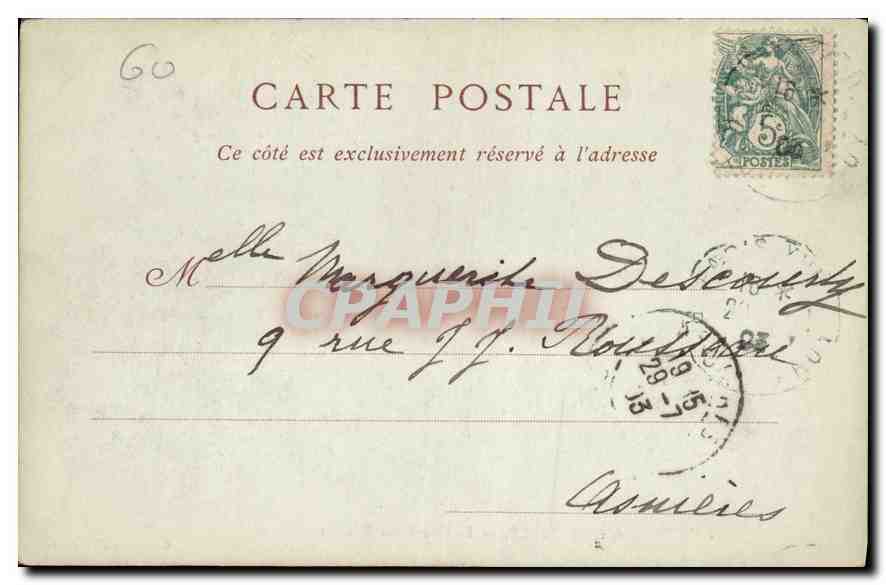 60
CARTE POSTALE
Ce côté est exclusivement réservé à l'adresse
5c
POSTES
Melle Marguerite Descourty
9 rue J. J. Rousseau
Asnières
CPAPHIL
19 15
29 -7
03
03